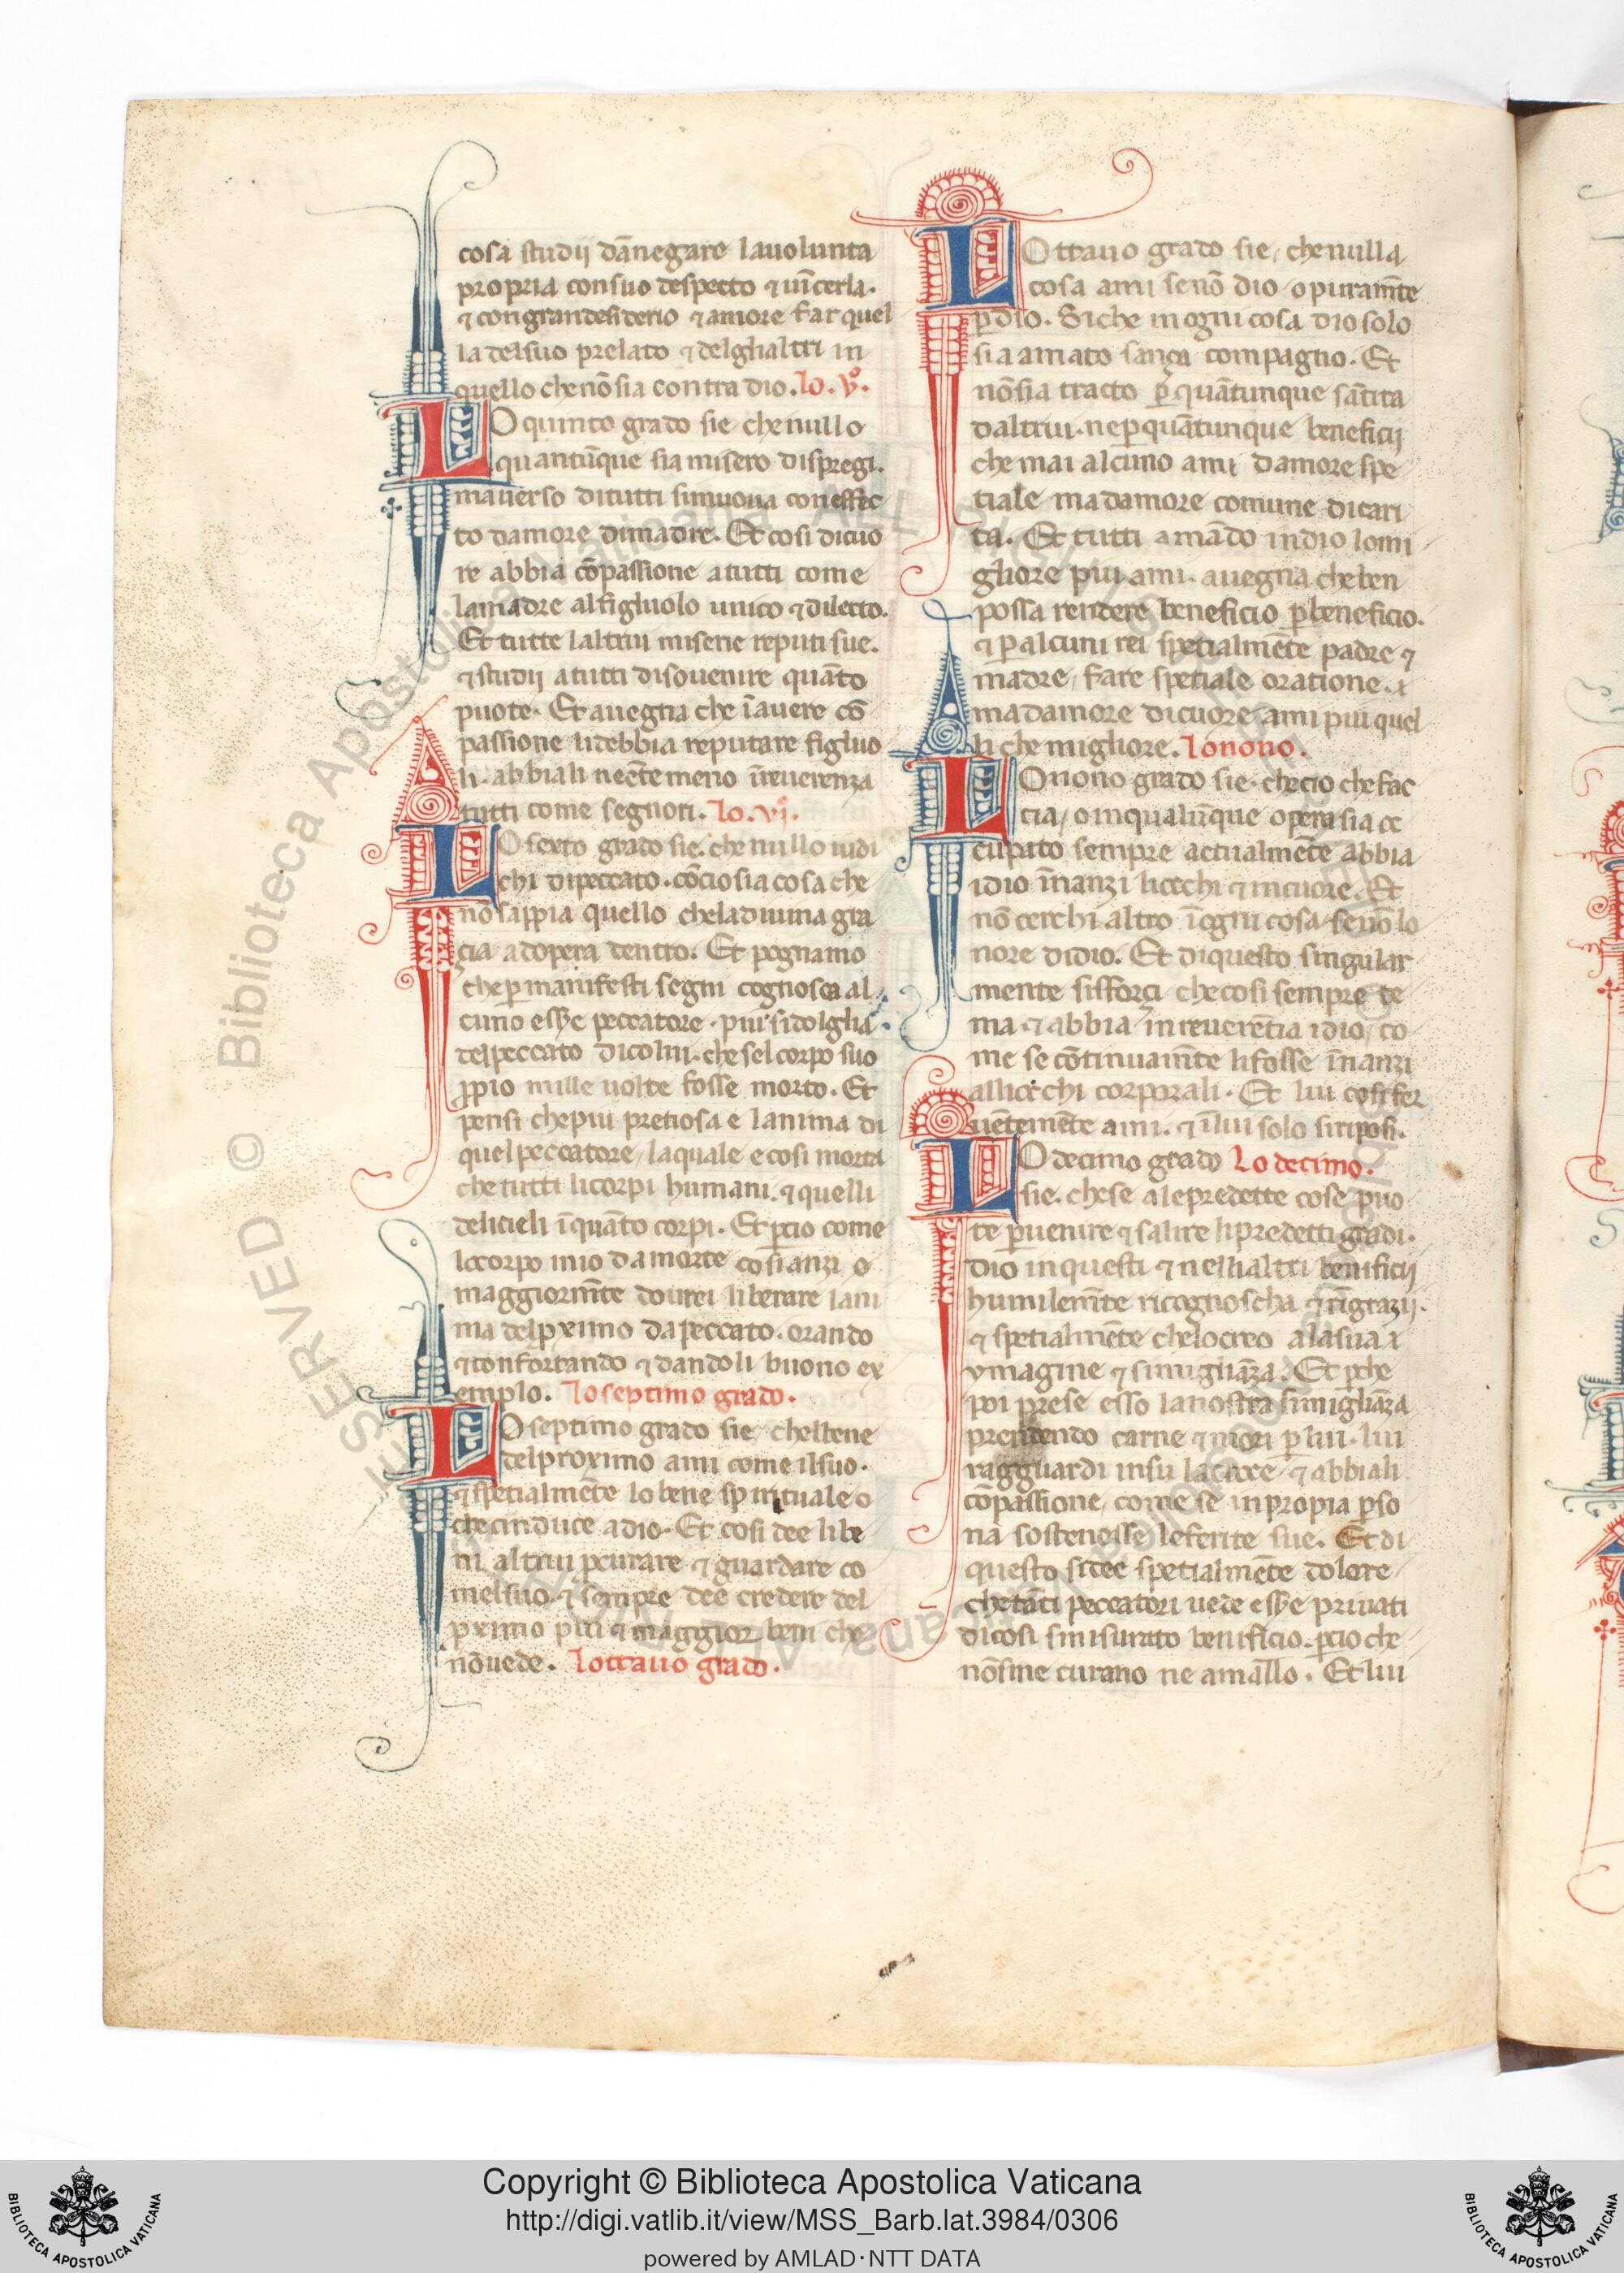 cosa studij dānegare lauolunta
propria consuo despecto ⁊ uīcerla.
⁊ congrandesiderio ⁊ amore far quel
la delsuo prelato ⁊ delghaltri in
quello chenōsia contra dio. lo. vº.
LO quinto grado sie chenullo
quantūque sia misero dispregi.
mauerso ditutti simuoua coneffec
to damore dimadre. Et cosi dicuo
re abbia cōpassione atutti come
lamadre alfigluolo unico ⁊ dilecto.
Et tutte laltrui miserie reputi sue.
⁊ studij atutti disouenire quāto
puote. Et auegna che īauere cō
passione lidebbia reputare figluo
li. abbiali neēte meno īreuerenza
tutti come segnori. lo. vjº.
LO sexto grado sie. che nullo iudi
chi dipeccato. cōciosia cosa che
nōsappia quello cheladiuina gra
çia adopera dentro. Et pognamo
cheꝑmanifesti segni cognosca al
cuno esse peccatore. piu sidolglia.
delpeccato dicolui. che sel corpo suo
ꝓpio mille uolte fosse morto. Et
pensi chepiu pretiosa e lanima di
quel peccatore, laquale e cosi morta
che tutti licorpi humani. ⁊ quelli
delicieli īquāto corpi. Et ꝑcio come
locorpo mio da morte cosi anzi o
maggiormēte dourei liberare lani
ma delꝓximo da peccato. orando
⁊ confortando ⁊ dandoli buono ex
emplo. lo septimo grado.
LO septimo grado sie, chelbene
delproximo ami come ilsuo.
⁊ spetialmēte lo bene spirituale o
checinduce adio. Et cosi dee libe
ni altrui ꝓcurare ⁊ guardare co
melsuo. ⁊ sempre dee credere del
ꝓximo piu ⁊ maggior beni che
nōuede. lottauo grado.
LOttauo grado sie, chenulla
cosa ami senō dio, o puramīte
ꝑdio. Siche inogni cosa dio solo
sia amato sança compagno. Et
nōsia tracto ꝑ quātunque sātita
daltrui. neꝑquātunque beneficij
che mai alcuno ami damore spe
tiale madamore comune dicari
ta. Et tutti amādo indio lomi
gliore piu ami. auegna cheben
possa rendere beneficio ꝑbeneficio.
⁊ ꝑalcuni rei spetialmēte padre ⁊
madre, fare spetiale oratione.
madamore dicuore ami piu quel
li che migliore. lonono.
LOnono grado sie. checio chefac
cia, o inqualūque opera sia oc
cupato sempre actualmēte abbia
idio īnanzi liocchi ⁊ incuore. Et
nō cerchi altro īogni cosa, senō lo
nore didio. Et diquesto singular
mente sisforçi checosi sempre te
ma. ⁊ abbia inreuerētia idio, co
me se cōtinuamīte lifosse īnanzi
alliocchi corporali. Et lui cosi fer
uētemēte ami. ⁊ īlui solo siriposi.
LO decimo grado Lo decimo.
sie. chese alepredette cose puo
te ꝑuenire ⁊ salire lipredetti gradi.
dio inquesti ⁊ nellialtri benificij
humilemīte ricognoscha ⁊ rīgrazij.
⁊ spetialmēte chelocreo alasua
ymagine ⁊ simigliāza. Et ꝑche
poi prese esso lanostra simigliāza
prendendo carne ⁊ mori ꝑ lui. lui
ragguardi insu lacroce ⁊ abbiali
cōpassione, come se inpropia ꝑso
na sostenesse leferite sue. Et di
questo sidee spetialmēte dolere
chetāti peccatori uede esse priuati
dicosi smisurato benificio. ꝑcio che
nōsine curano ne amāllo. Et lui
Copyright © Biblioteca Apostolica Vaticana
http://digi.vatlib.it/view/MSS_Barb.lat.3984/0306
powered by AMLAD·NTT DATA
BIBLIOTECA APOSTOLICA VATICANA
BIBLIOTECA APOSTOLICA VATICANA